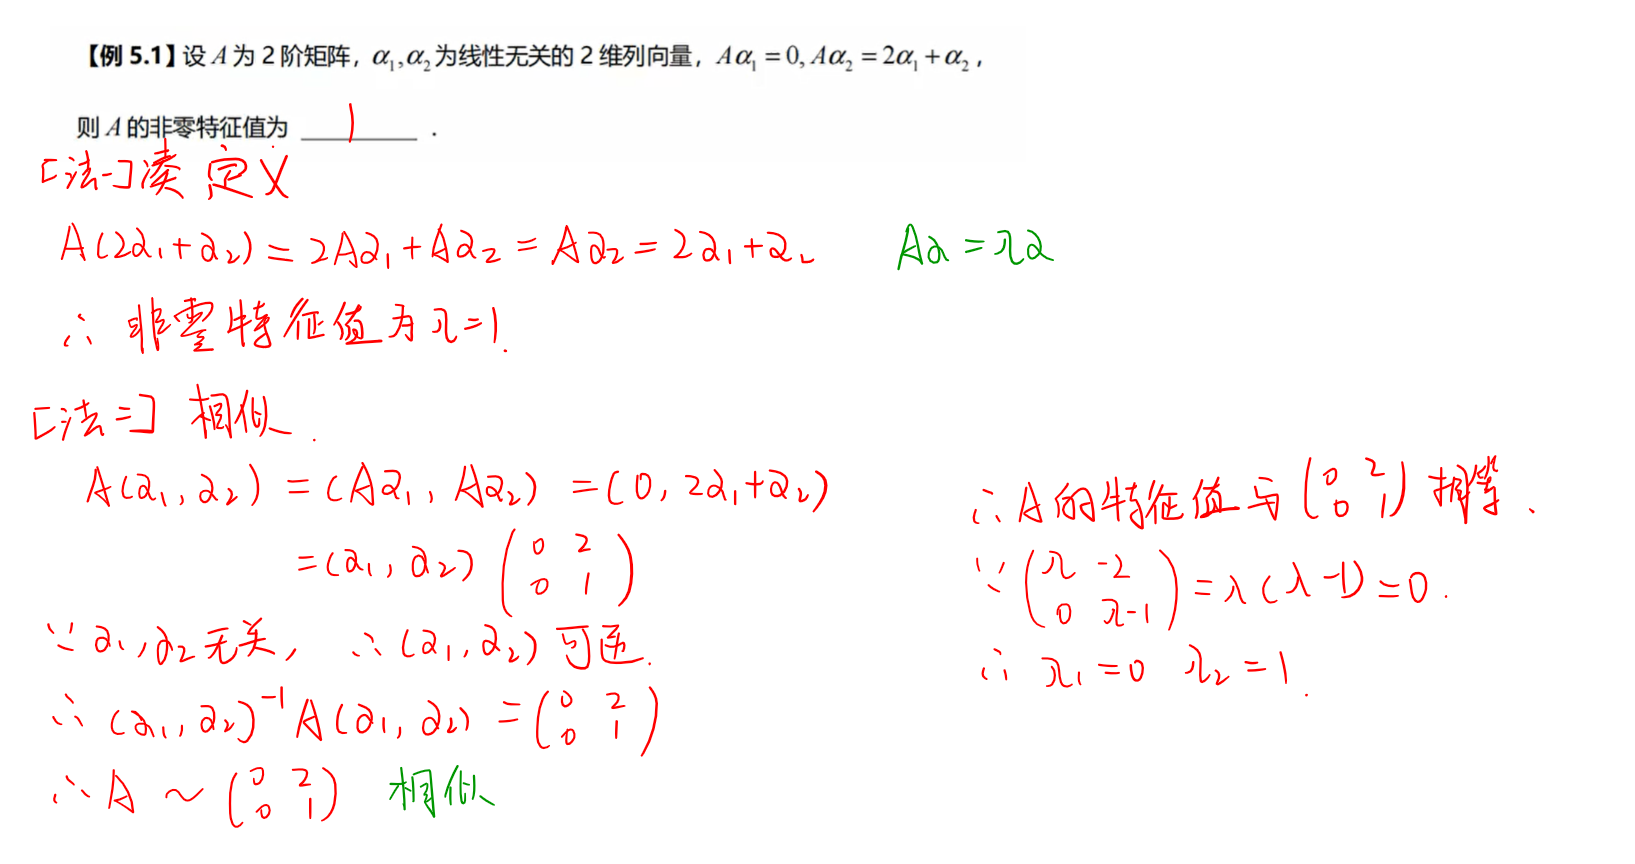 【例 5.1】设 A 为 2 阶矩阵，α₁,α₂ 为线性无关的 2 维列向量，Aα₁ = 0, Aα₂ = 2α₁ + α₂，
则 A 的非零特征值为 1 .
[法一] 凑 定义
A(2α₁+α₂) = 2Aα₁ + Aα₂ = Aα₂ = 2α₁+α₂ Aα = λα
∴ 非零特征值为 λ=1.
[法二] 相似.
A(α₁, α₂) = (Aα₁, Aα₂) = (0, 2α₁+α₂)
= (α₁, α₂) (0 2
0 1)
∵ α₁, α₂ 无关, ∴ (α₁, α₂) 可逆.
∴ (α₁, α₂)⁻¹ A (α₁, α₂) = (0 2
0 1)
∴ A ~ (0 2
0 1) 相似
∴ A 的特征值与 (0 2
0 1) 相等.
∵ (λ -2
0 λ-1) = λ(λ-1) = 0.
∴ λ₁ = 0 λ₂ = 1.